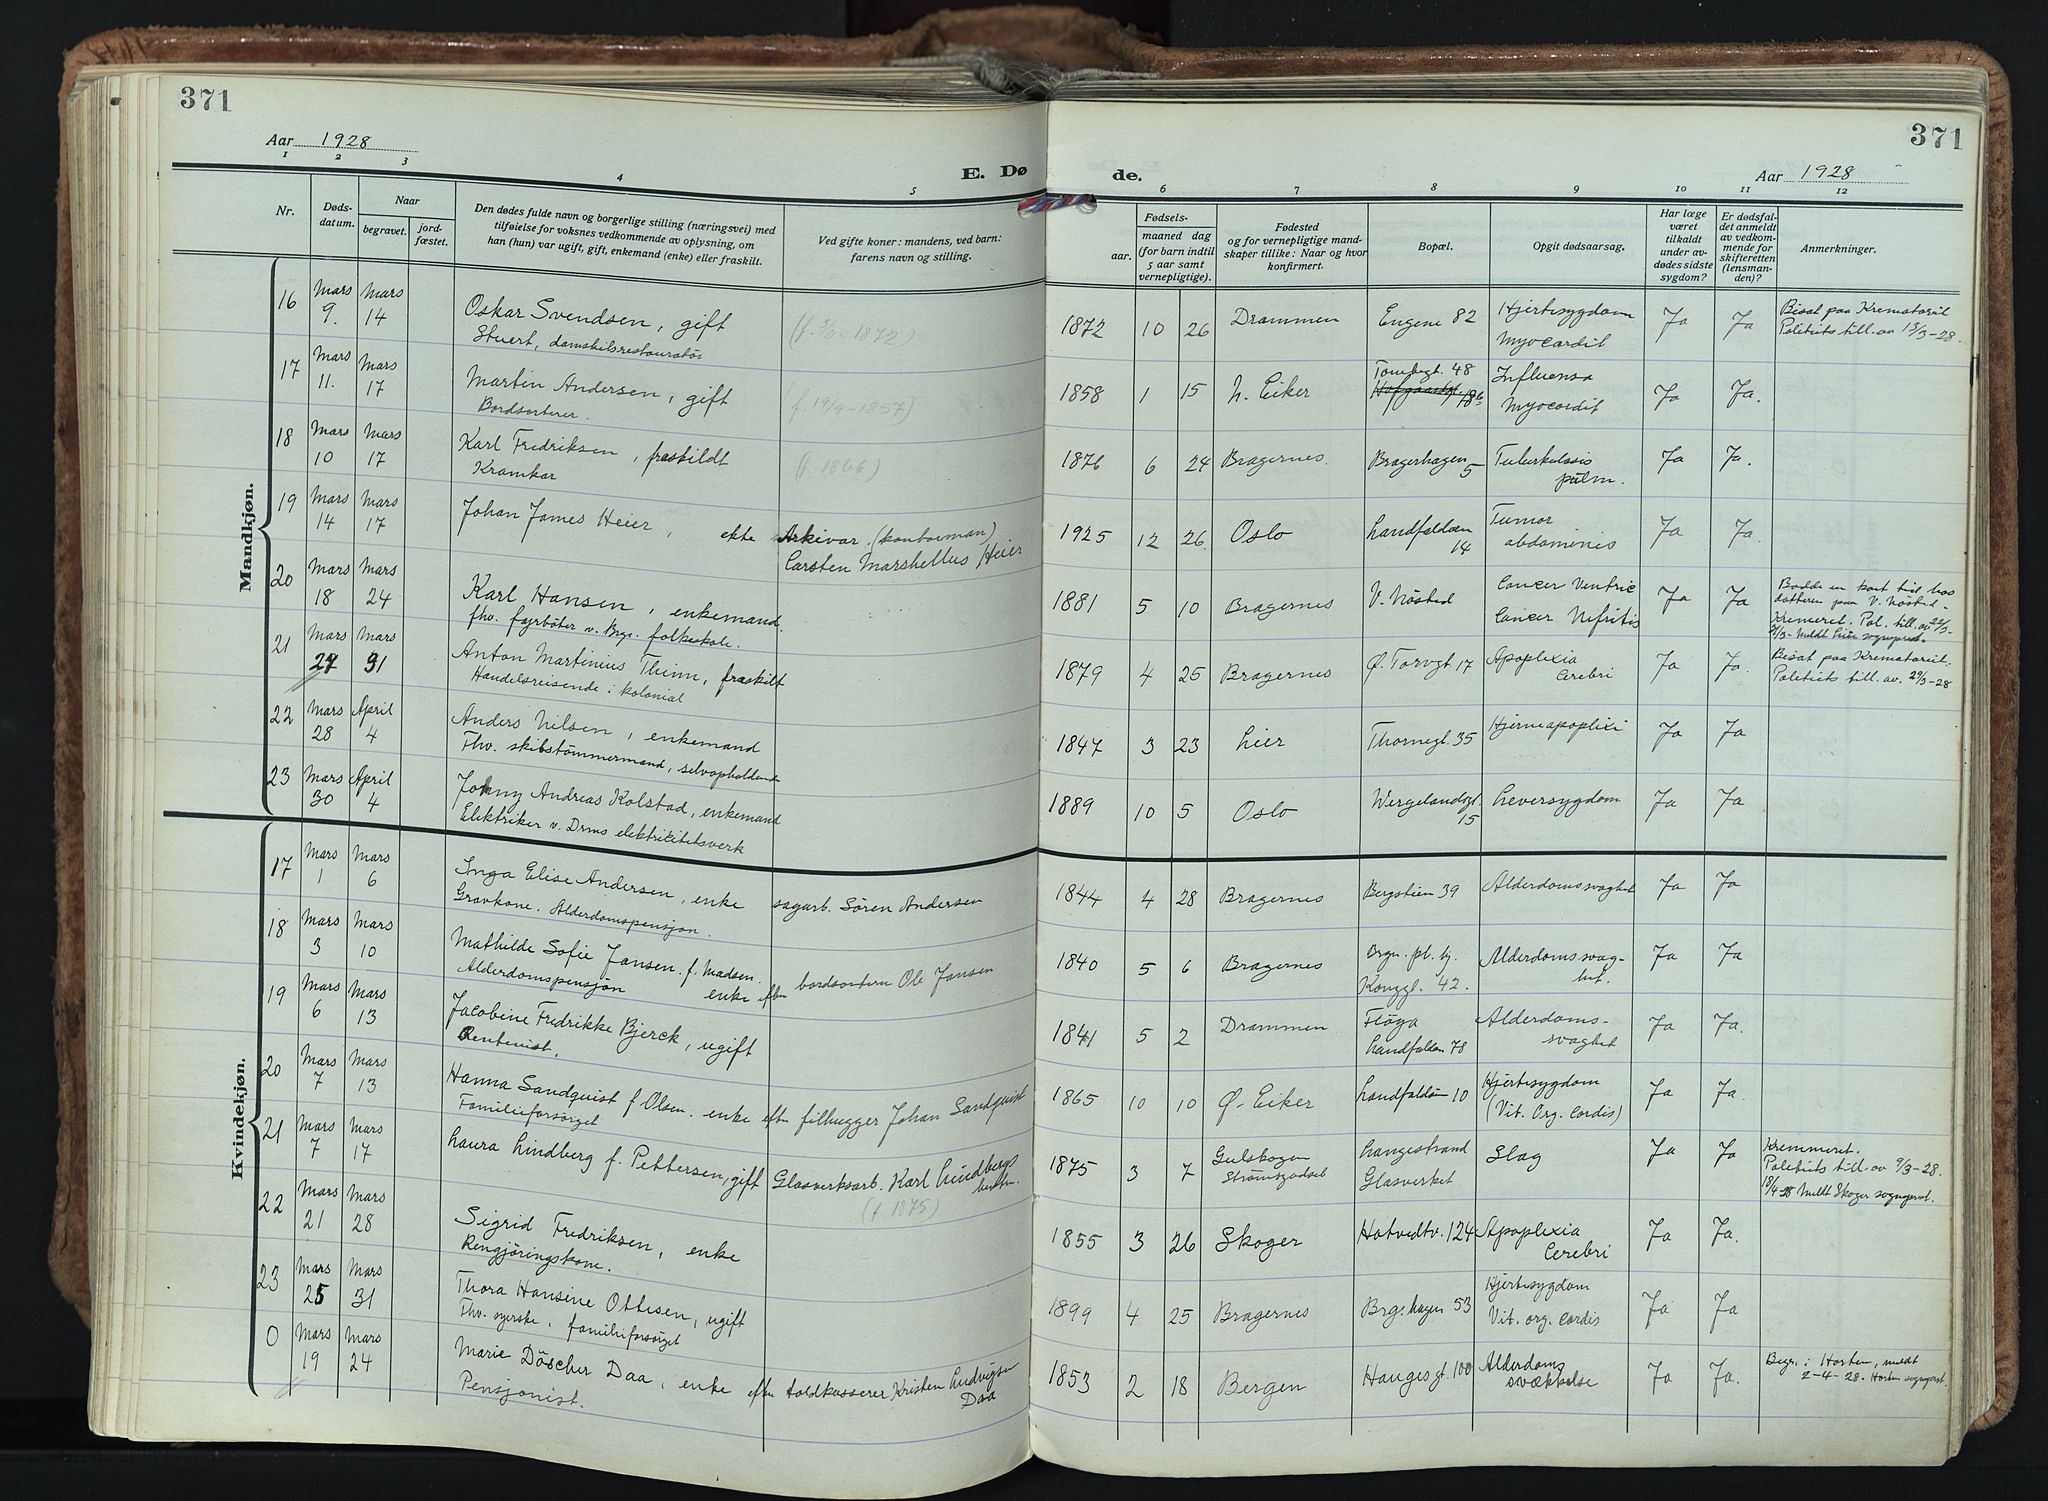 371
Aar 1928
1 2 3 4 5
E. Dø
Nr.
Døds-
datum.
Naar
begravet.
jord-
fæstet.
Den dødes fulde navn og borgerlige stilling (næringsvei) med
tilføielse for voksnes vedkommende av oplysning, om
han (hun) var ugift, gift, enkemand (enke) eller fraskilt.
Ved gifte koner: mandens, ved barn:
farens navn og stilling.
Mandkjøn.
16 Mars 9. Mars 14 Oskar Svendsen, gift (f. 5/11-1872)
Stuert, damskibsrestauratør
17 Mars 11. Mars 17 Martin Andersen, gift (f. 19/9-1857)
Bordsorterer.
18 Mars 10 Mars 17 Karl Fredriksen, fraskildt (f. 1866)
Kramkar
19 Mars 14 Mars 17 Johan James Heier, ekte Arkivar (kontorman)
Carsten Marshellus Heier
20 Mars 18 Mars 24 Karl Hansen, enkemand.
fhv. fyrbøter v. Brgn. folkeskole.
21 Mars 27 Mars 31 Anton Martinius Thinn, fraskilt
Handelsreisende i kolonial
22 Mars 28 April 4 Anders Nilsen, enkemand
Fhv. skibstømmermand, selvopholdende
23 Mars 30 April 4 Johnny Andreas Kolstad, enkemand
Elektriker v. Drms elektricitetsverk
Kvindekjøn.
17 Mars 1 Mars 6 Inga Elise Andersen, enke sagarb. Sören Andersen
Gravkone. Alderdomspensjon.
18 Mars 3 Mars 10 Mathilde Sofie Jansen. f. Madsen.
Alderdomspensjon enke efter bordsorterer Ole Jansen
19 Mars 6 Mars 13 Jacobine Fredrikke Bjerck, ugift
Rentenist.
20 Mars 7 Mars 13 Hanna Sandquist f Olsen. enke efter filhugger Johan Sandquist
Familieforsørget
21 Mars 7 Mars 17 Laura Lindberg f. Pettersen, gift Glasverksarb. Karl Lindbergs
hustru.
(f. 1875)
22 Mars 21 Mars 28 Sigrid Fredriksen, enke
Rengjøringskone.
23 Mars 25 Mars 31 Thora Hansine Ottesen, ugift
Fhv. syerske, familieforsørget
0 Mars 19 Mars 24 Marie Döscher Daa, enke efter toldkasserer Kristen Ludvigsen
Daa
Pensjonist.
371
Aar 1928
de.
6 7 8 9 10 11 12
Fødsels-
aar.
maaned dag
(for barn indtil
5 aar samt
vernepligtige).
Fødested
og for vernepligtige mand-
skaper tillike: Naar og hvor
konfirmert.
Bopæl.
Opgit dødsaarsag.
Har læge
været
tilkaldt
under av-
dødes sidste
sygdom?
Er dødsfal-
det anmeldt
av vedkom-
mende for
skifteretten
(lensman-
den)?
Anmerkninger.
1872 10 26 Drammen Engene 82 Hjertesygdom Myocardit Ja Ja Bisat paa Krematoriet
Politiets till. av 13/3-28.
1858 1 15 N. Eiker Tomtegt. 48 Influensa Myocardit Ja Ja.
1876 6 24 Bragernes. Bragerhagen 5 Tuberkulosis pulm. Ja Ja.
1925 12 26 Oslo Landfaldøen 14 Tumor abdominis Ja Ja.
1881 5 10 Bragernes V. Nøsted Cancer Ventric Cancer Nefritis Ja Ja Bodde en kort tid hos
datteren paa V. Nøsted.
Kremeret. Pol. till. av 22/3-
meldt Lier sogneprest.
1879 4 25 Bragernes Ø. Torvgt 17 Apoplexia Cerebri Ja Ja. Bisat paa Krematoriet.
Politiets till. av. 29/3-28
1847 3 23 Lier Thornegt. 35 Hjerneapoplexi Ja Ja
1889 10 5 Oslo Wergelandsgt. 15 Leversygdom Ja Ja
1844 4 28 Bragernes Bergstien 39 Alderdomssvaghet Ja Ja
1840 5 6 Bragernes Brgn. pl. hj.
Konggt. 42. Alderdomssvag-
het. Ja Ja
1841 5 2 Drammen Fløya
Landfaldøen 78 Alderdoms-
svaghet Ja Ja.
1865 10 10 Ø. Eiker Landfaldøen 10 Hjertesygdom
(Vit. Org. Cordis) Ja Ja.
1875 3 7 Gulskogen
Strømsgodset Langestrand
Glasverket Slag Ja Ja Kremmeret.
Politiets till. av 9/3-28.
18/4-28 Meldt Skoger sogneprest.
1855 3 26 Skoger Hotvedtv. 124 Apoplexia
Cerebri Ja Ja.
1899 4 25 Bragernes Brg.hagen 53 Hjertesygdom
Vit. org. cordis Ja Ja
1853 2 18 Bergen Haugesgt. 100 Alderdoms
svækkelse Ja Ja. Begr. i Horten, meldt
2-4-28. Horten sogneprest.